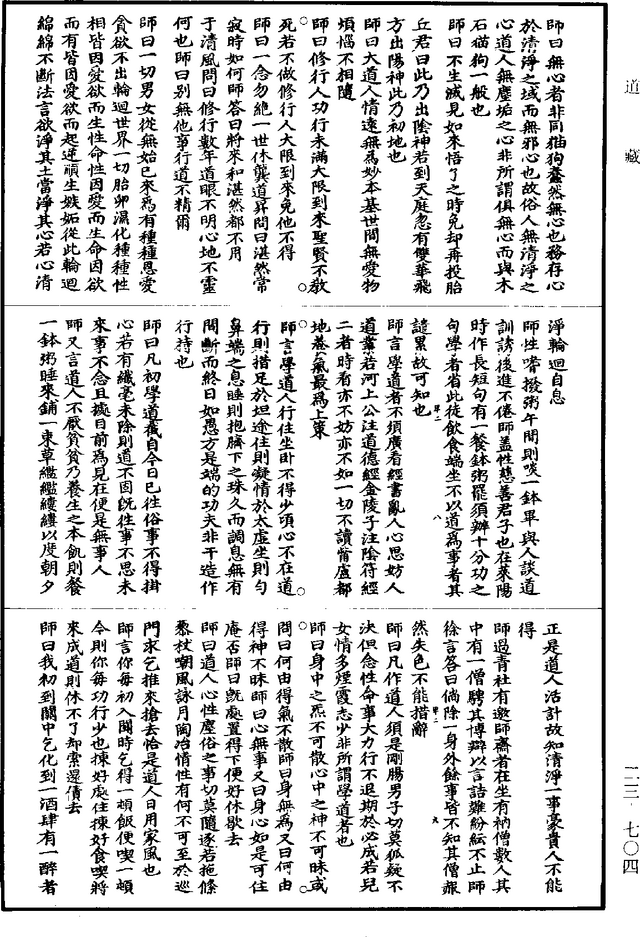 道藏
二三·七〇四
師曰無心者非同猫狗蠢然無心也務存心
於清淨之域而無邪心也故俗人無清淨之
心道人無塵垢之心非所謂俱無心而與木
石猫狗一般也
師曰不生滅見如來悟了之時免却再投胎
丘君曰此乃出陰神若到天庭忽有雙華飛
方出陽神此乃初地也
師曰大道人情遠無為妙本基世間無愛物
煩惱不相隨
師曰修行人功行未滿大限到來聖賢不敎
死若不做修行人大限到來免他不得
師曰一念勿絶一世休龔道昇問曰湛然常
寂時如何師答曰將來和湛然都不用
于清風問曰修行數年道眼不明心地不靈
何也師曰别無他事行道不精爾
師曰一切男女從無始已來爲有種種恩愛
貪欲不出輪迴世界一切胎卵濕化種種性
相皆因愛欲而生性命性因愛而生命因欲
而有皆因愛欲而起逆順生嫉妬從此輪迴
綿綿不斷法言欲淨其土當淨其心若心清
淨輪迴自息
師性嗜撥粥午間則啖一鉢畢與人談道
訓誘後進不倦師盖性慈善君子也在萊陽
時作長短句有一餐鉢粥罷須辦十分功之
句學者省此徒飲食端坐不以道爲事者其
譴累故可知也
師言學道者不須廣看經書亂人心思妨人
道業若河上公注道德經金陵子注陰符經
二者時看亦不妨亦不如一切不讀觜盧都
地養氣最爲上策
師言學道人行住坐卧不得少頃心不在道
行則措足於坦途住則凝情於太虛坐則勻
鼻端之息睡則抱臍下之珠久而調息無有
間斷而終日如愚方是端的功夫非干造作
行持也
師曰凡初學道截自今日已往俗事不得掛
心若有纖毫未除則道不固既往事不思未
來事不念且據目前爲見在便是無事人
師又言道人不厭貧貧乃養生之本飢則餐
一鉢粥睡來鋪一束草繿繿縷縷以度朝夕
正是道人活計故知清淨一事豪貴人不能
得
師過青社有邀師齋者在坐有衲僧數人其
中有一僧騁其博辯以言詰難紛紜不止師
徐言答曰倘除一身外餘事皆不知其僧赧
然失色不能措辭
師曰凡作道人須是剛腸男子切莫狐疑不
決但念性命事大力行不退期於必成若兒
女情多煙霞志少非所謂學道者也
師曰身中之炁不可散心中之神不可昧或
問曰何由得氣不散師曰身無爲又曰何由
得神不昧師曰心無事又曰身心如是可住
庵否師曰既處置得下便好休歇去
師曰道人心性塵俗之事切莫隨逐若拖條
藜杖嘲風詠月陶冶情性有何不可至於巡
門求乞推來搶去恰是道人日用家風也
師言你每初入關時乞得一頓飯便喫一頓
今則你每功行少也揀好處住揀好食喫將
來成道則休不了却索還債去
師曰我初到關中乞化到一酒肆有一醉者